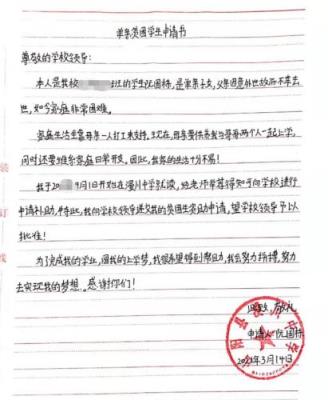 单亲贫困学生申请书
尊敬的学校领导：
本人是我校 班的学生阮国栋，是单亲子女，父亲因意外也故而不幸去
世，如今家庭非常困难。
家庭生活主要靠母亲一人打工来支持。现在，母亲要供养我与哥哥两个人一起上学，
同时还要维系家庭日常开支，因此，我家的生活十分不易！
我于20 9月1日开学在 川中学就读，经老师举荐得知可向学校进行
申请补助，在此，我向学校领导递交我的贫困生资助申请，望学校领导予以
批准！
为了完成我的学业，圆我的上学梦，我很希望得到帮助，我会努力拼搏，努力
去实现我的梦想，感谢你们！
此致 敬礼
申请人：阮国栋
2023年3月14日